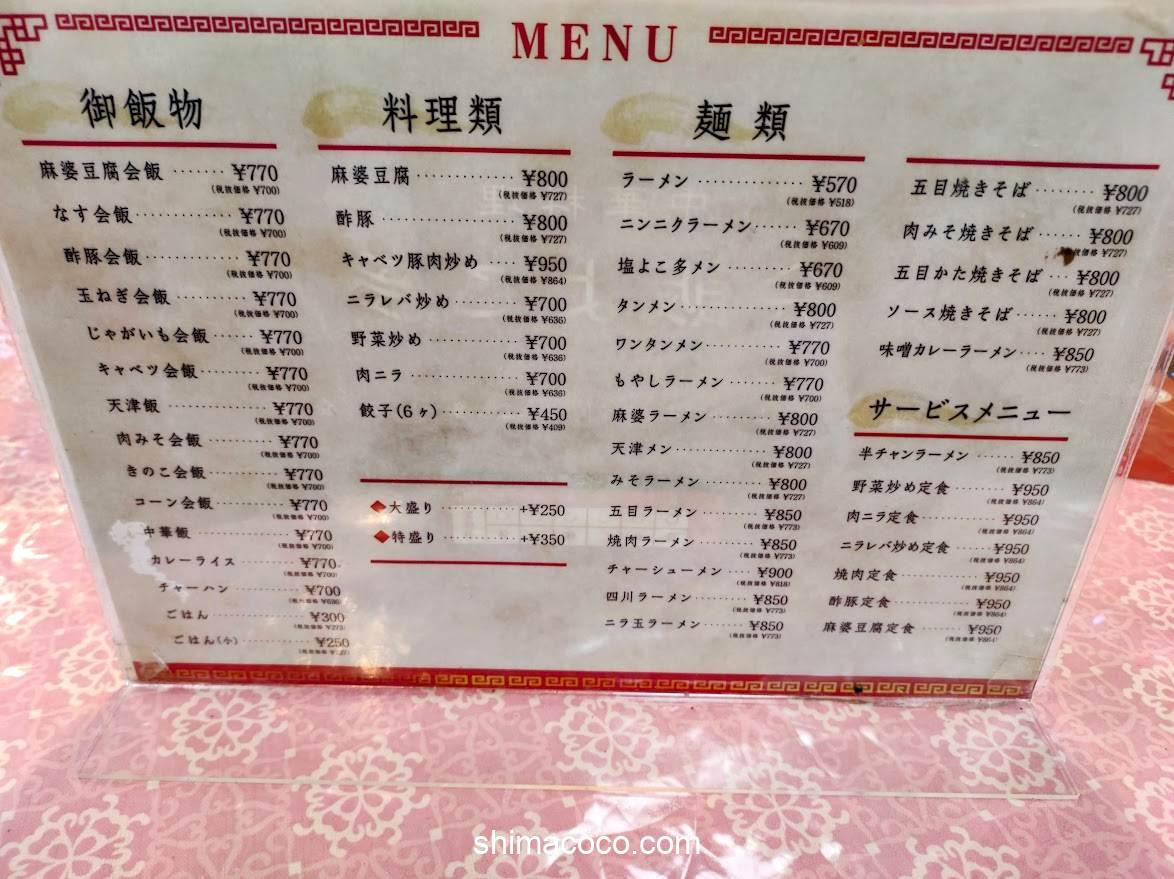 MENU
御飯物
麻婆豆腐会飯 ······· ¥770
(税抜価格 ¥700)
なす会飯 ············ ¥770
(税抜価格 ¥700)
酢豚会飯 ············ ¥770
(税抜価格 ¥700)
玉ねぎ会飯 ·········· ¥770
(税抜価格 ¥700)
じゃがいも会飯 ······ ¥770
(税抜価格 ¥700)
キャベツ会飯 ········ ¥770
(税抜価格 ¥700)
天津飯 ·············· ¥770
(税抜価格 ¥700)
肉みそ会飯 ·········· ¥770
(税抜価格 ¥700)
きのこ会飯 ·········· ¥770
(税抜価格 ¥700)
コーン会飯 ·········· ¥770
(税抜価格 ¥700)
中華飯 ·············· ¥770
(税抜価格 ¥700)
カレーライス ········ ¥770
(税抜価格 ¥700)
チャーハン ·········· ¥700
ごはん ·············· ¥300
(税抜価格 ¥273)
ごはん(小) ·········· ¥250
料理類
麻婆豆腐 ············ ¥800
(税抜価格 ¥727)
酢豚 ················ ¥800
(税抜価格 ¥727)
キャベツ豚肉炒め ···· ¥950
(税抜価格 ¥864)
ニラレバ炒め ········ ¥700
(税抜価格 ¥636)
野菜炒め ············ ¥700
(税抜価格 ¥636)
肉ニラ ·············· ¥700
(税抜価格 ¥636)
餃子(6ヶ) ··········· ¥450
(税抜価格 ¥409)
◆大盛り ············ +¥250
◆特盛り ············ +¥350
麺類
ラーメン ············ ¥570
(税抜価格 ¥518)
ニンニクラーメン ···· ¥670
(税抜価格 ¥609)
塩よこ多メン ········ ¥670
(税抜価格 ¥609)
タンメン ············ ¥800
(税抜価格 ¥727)
ワンタンメン ········ ¥770
(税抜価格 ¥700)
もやしラーメン ······ ¥770
(税抜価格 ¥700)
麻婆ラーメン ········ ¥800
(税抜価格 ¥727)
天津メン ············ ¥800
(税抜価格 ¥727)
みそラーメン ········ ¥800
(税抜価格 ¥727)
五目ラーメン ········ ¥850
(税抜価格 ¥773)
焼肉ラーメン ········ ¥850
(税抜価格 ¥773)
チャーシューメン ···· ¥900
(税抜価格 ¥818)
四川ラーメン ········ ¥850
(税抜価格 ¥773)
ニラ玉ラーメン ······ ¥850
(税抜価格 ¥773)
五目焼きそば ······· ¥800
(税抜価格 ¥727)
肉みそ焼きそば ······ ¥800
(税抜価格 ¥727)
五目かた焼きそば ··· ¥800
(税抜価格 ¥727)
ソース焼きそば ······ ¥800
(税抜価格 ¥727)
味噌カレーラーメン ···· ¥850
(税抜価格 ¥773)
サービスメニュー
半チャンラーメン ······ ¥850
(税抜価格 ¥773)
野菜炒め定食 ········ ¥950
(税抜価格 ¥864)
肉ニラ定食 ·········· ¥950
(税抜価格 ¥864)
ニラレバ炒め定食 ···· ¥950
(税抜価格 ¥864)
焼肉定食 ············ ¥950
(税抜価格 ¥864)
酢豚定食 ············ ¥950
(税抜価格 ¥864)
麻婆豆腐定食 ········ ¥950
(税抜価格 ¥864)
shimacoco.com